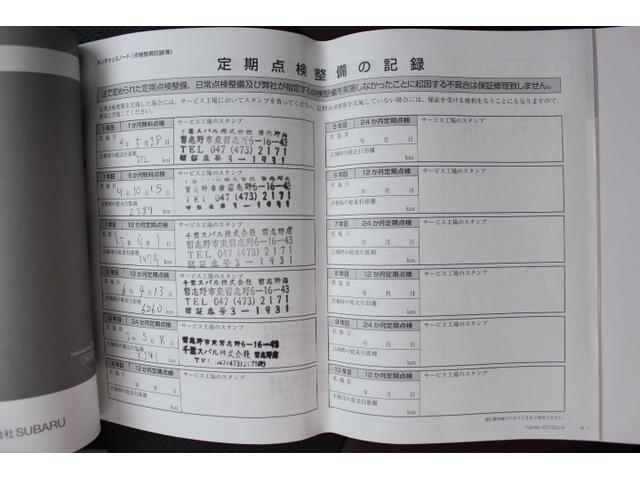 メンテナンスノート(点検整備記録簿)
定期点検整備の記録
法で定められた定期点検整備、日常点検整備及び弊社が指定する点検整備を実施しなかったことに起因する不具合は保証修理致しません。
定期点検整備を実施した場合には、サービス工場においてスタンプを貰ってください。定期点検整備を実施していない場合には、保証を受ける権利を失うことにもなりますので、
確実に実施してください。
1年目 1か月無料点検
サービス工場のスタンプ
実施日 4年5月28日
点検時の総走行距離
km
千葉スバル株式会社 習志野店
習志野市東習志野6-16-43
TEL 047 (473) 2171
認証番号 3-1931
1年目 6か月無料点検
サービス工場のスタンプ
実施日 4年10月15日
点検時の総走行距離
2389 km
千葉スバル株式会社 習志野店
習志野市東習志野6-16-43
TEL 047 (473) 2171
認証番号 3-1931
1年目 12か月定期点検
サービス工場のスタンプ
実施日
点検時の総走行距離
km
千葉スバル株式会社 習志野店
習志野市東習志野6-16-43
TEL 047 (473) 2171
認証番号 3-1931
2年目 12か月定期点検
サービス工場のスタンプ
実施日 6年4月13日
点検時の総走行距離
6260 km
千葉スバル株式会社 習志野店
習志野市東習志野6-16-43
TEL 047 (473) 2171
認証番号 3-1931
3年目 24か月定期点検
サービス工場のスタンプ
実施日
点検時の総走行距離
km
習志野市東習志野6-16-43
千葉スバル株式会社 習志野店
TEL 047(473)2171
4年目 12か月定期点検
サービス工場のスタンプ
実施日 年 月 日
点検時の総走行距離
km
5年目 24か月定期点検
サービス工場のスタンプ
実施日
年 月 日
点検時の総走行距離
km
6年目 12か月定期点検
サービス工場のスタンプ
実施日
年 月 日
点検時の総走行距離
km
7年目 24か月定期点検
サービス工場のスタンプ
実施日
年 月 日
点検時の総走行距離
km
8年目 12か月定期点検
サービス工場のスタンプ
実施日
年 月 日
点検時の総走行距離
km
9年目 24か月定期点検
サービス工場のスタンプ
実施日
年 月 日
点検時の総走行距離
km
10年目 12か月定期点検
サービス工場のスタンプ
実施日
年 月 日
点検時の総走行距離
km
会社 SUBARU